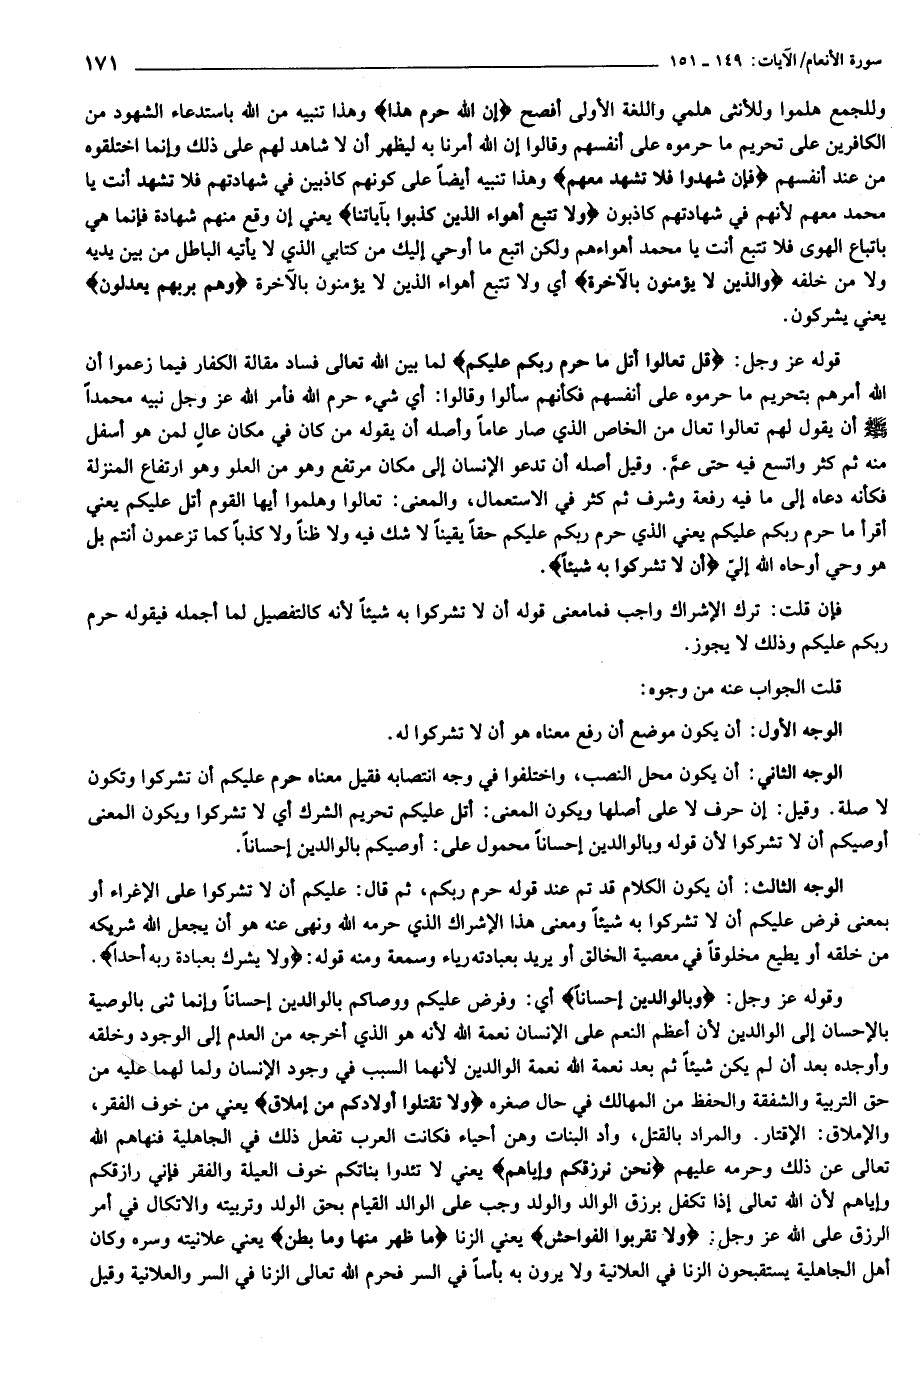 سورة الأنعام/ الآيات: ١٤٩ - ١٥١ ١٧١
وللجمع هلموا وللأنثى هلمي واللغة الأولى أفصح ﴿إن الله حرم هذا﴾ وهذا تنبيه من الله باستدعاء الشهود من
الكافرين على تحريم ما حرموه على أنفسهم وقالوا إن الله أمرنا به ليظهر أن لا شاهد لهم على ذلك وإنما اختلقوه
من عند أنفسهم ﴿فإن شهدوا فلا تشهد معهم﴾ وهذا تنبيه أيضاً على كونهم كاذبين في شهادتهم فلا تشهد أنت يا
محمد معهم لأنهم في شهادتهم كاذبون ﴿ولا تتبع أهواء الذين كذبوا بآياتنا﴾ يعني إن وقع منهم شهادة فإنما هي
باتباع الهوى فلا تتبع أنت يا محمد أهواءهم ولكن اتبع ما أوحي إليك من كتابي الذي لا يأتيه الباطل من بين يديه
ولا من خلفه ﴿والذين لا يؤمنون بالآخرة﴾ أي ولا تتبع أهواء الذين لا يؤمنون بالآخرة ﴿وهم بربهم يعدلون﴾
يعني يشركون.
قوله عز وجل: ﴿قل تعالوا أتل ما حرم ربكم عليكم﴾ لما بين الله تعالى فساد مقالة الكفار فيما زعموا أن
الله أمرهم بتحريم ما حرموه على أنفسهم فكأنهم سألوا وقالوا: أي شيء حرم الله فأمر الله عز وجل نبيه محمداً
ﷺ أن يقول لهم تعالوا تعال من الخاص الذي صار عاماً وأصله أن يقوله من كان في مكان عالٍ لمن هو أسفل
منه ثم كثر واتسع فيه حتى عمَّ. وقيل أصله أن تدعو الإنسان إلى مكان مرتفع وهو من العلو وهو ارتفاع المنزلة
فكأنه دعاه إلى ما فيه رفعة وشرف ثم كثر في الاستعمال، والمعنى: تعالوا وهلموا أيها القوم أتل عليكم يعني
أقرأ ما حرم ربكم عليكم يعني الذي حرم ربكم عليكم حقاً يقيناً لا شك فيه ولا ظناً ولا كذباً كما تزعمون أنتم بل
هو وحي أوحاه الله إليّ ﴿أن لا تشركوا به شيئاً﴾.
فإن قلت: ترك الإشراك واجب فمامعنى قوله أن لا تشركوا به شيئاً لأنه كالتفصيل لما أجمله فيقوله حرم
ربكم عليكم وذلك لا يجوز.
قلت الجواب عنه من وجوه:
الوجه الأول: أن يكون موضع أن رفع معناه هو أن لا تشركوا له.
الوجه الثاني: أن يكون محل النصب، واختلفوا في وجه انتصابه فقيل معناه حرم عليكم أن تشركوا وتكون
لا صلة. وقيل: إن حرف لا على أصلها ويكون المعنى: أتل عليكم تحريم الشرك أي لا تشركوا ويكون المعنى
أوصيكم أن لا تشركوا لأن قوله وبالوالدين إحساناً محمول على: أوصيكم بالوالدين إحساناً.
الوجه الثالث: أن يكون الكلام قد تم عند قوله حرم ربكم، ثم قال: عليكم أن لا تشركوا على الإغراء أو
بمعنى فرض عليكم أن لا تشركوا به شيئاً ومعنى هذا الإشراك الذي حرمه الله ونهى عنه هو أن يجعل الله شريكه
من خلقه أو يطيع مخلوقاً في معصية الخالق أو يريد بعبادته رياء وسمعة ومنه قوله: ﴿ولا يشرك بعبادة ربه أحداً﴾.
وقوله عز وجل: ﴿وبالوالدين إحساناً﴾ أي: وفرض عليكم ووصاكم بالوالدين إحساناً وإنما ثنى بالوصية
بالإحسان إلى الوالدين لأن أعظم النعم على الإنسان نعمة الله لأنه هو الذي أخرجه من العدم إلى الوجود وخلقه
وأوجده بعد أن لم يكن شيئاً ثم بعد نعمة الله نعمة الوالدين لأنهما السبب في وجود الإنسان ولما لهما عليه من
حق التربية والشفقة والحفظ من المهالك في حال صغره ﴿ولا تقتلوا أولادكم من إملاق﴾ يعني من خوف الفقر،
والإملاق: الإقتار. والمراد بالقتل، وأد البنات وهن أحياء فكانت العرب تفعل ذلك في الجاهلية فنهاهم الله
تعالى عن ذلك وحرمه عليهم ﴿نحن نرزقكم وإياهم﴾ يعني لا تئدوا بناتكم خوف العيلة والفقر فإني رازقكم
وإياهم لأن الله تعالى إذا تكفل برزق الوالد والولد وجب على الوالد القيام بحق الولد وتربيته والاتكال في أمر
الرزق على الله عز وجل: ﴿ولا تقربوا الفواحش﴾ يعني الزنا ﴿ما ظهر منها وما بطن﴾ يعني علانيته وسره وكان
أهل الجاهلية يستقبحون الزنا في العلانية ولا يرون به بأساً في السر فحرم الله تعالى الزنا في السر والعلانية وقيل